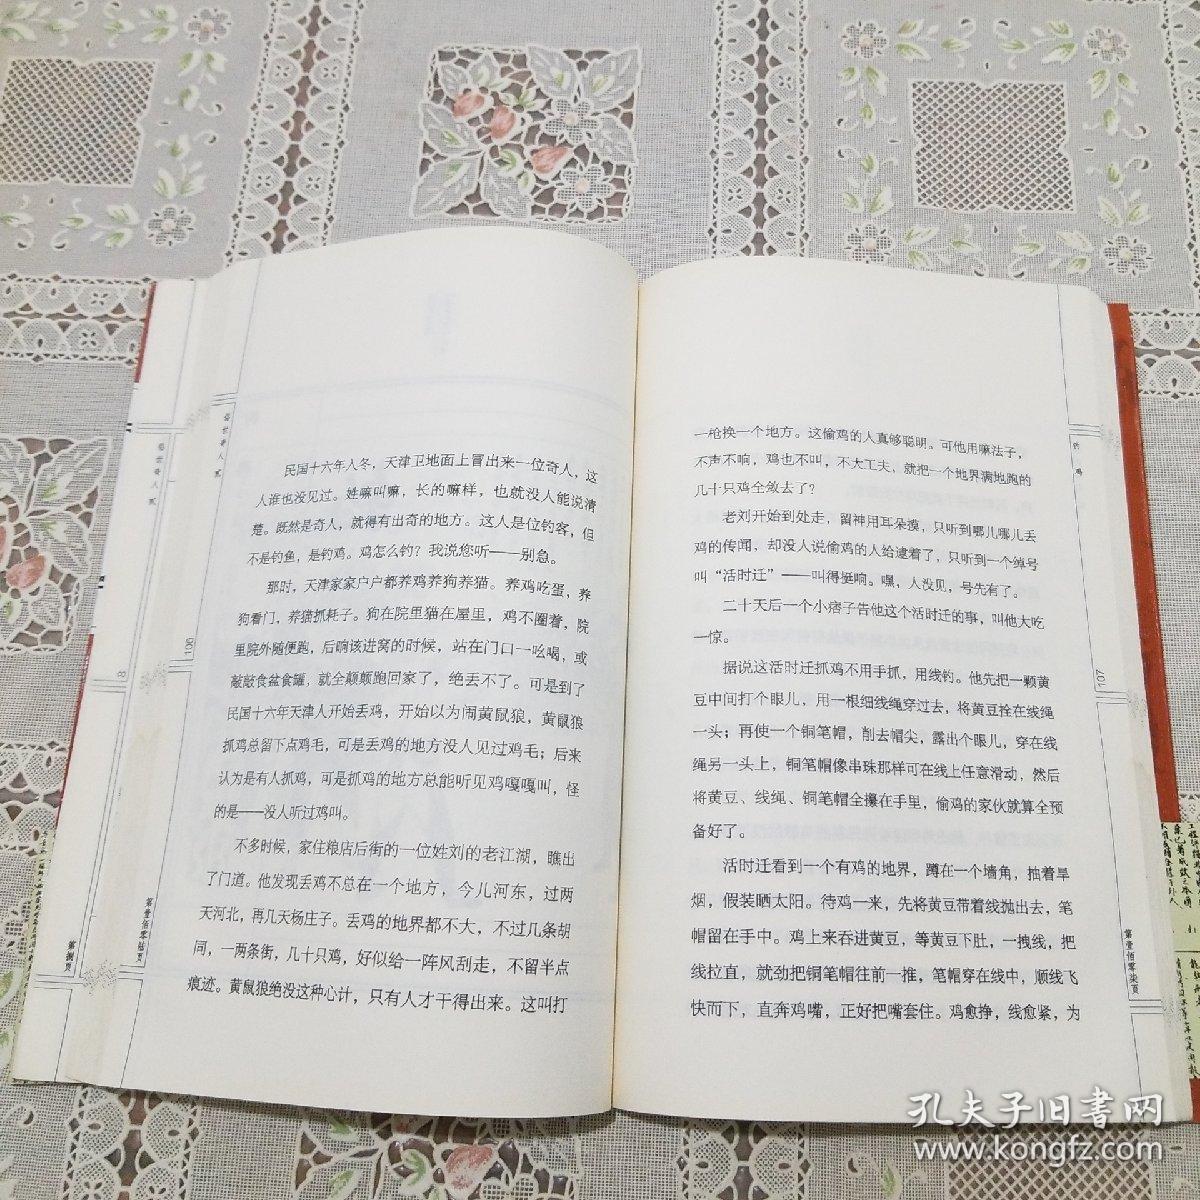 民国十六年入冬，天津卫地面上冒出来一位奇人，这
人谁也没见过。姓嘛叫嘛，长的嘛样，也就没人能说清
楚。既然是奇人，就得有出奇的地方。这人是位钓客，但
不是钓鱼，是钓鸡。鸡怎么钓？我说您听——别急。
那时，天津家家户户都养鸡养狗养猫。养鸡吃蛋，养
狗看门，养猫抓耗子。狗在院里猫在屋里，鸡不圈着，院
里院外随便跑，后晌该进窝的时候，站在门口一吆喝，或
敲敲食盆食罐，就全颠颠跑回家了，绝丢不了。可是到了
民国十六年天津人开始丢鸡，开始以为闹黄鼠狼，黄鼠狼
抓鸡总留下点鸡毛，可是丢鸡的地方没人见过鸡毛；后来
认为是有人抓鸡，可是抓鸡的地方总能听见鸡嘎嘎叫，怪
的是——没人听过鸡叫。
不多时候，家住粮店后街的一位姓刘的老江湖，瞧出
了门道。他发现丢鸡不总在一个地方，今儿河东，过两
天河北，再几天杨庄子。丢鸡的地界都不大，不过几条胡
同，一两条街，几十只鸡，好似给一阵风刮走，不留半点
痕迹。黄鼠狼绝没这种心计，只有人才干得出来。这叫打
俗世奇人 贰
106
第壹佰零陆页
俗世奇人 贰
8
第捌页
一枪换一个地方。这偷鸡的人真够聪明。可他用嘛法子，
不声不响，鸡也不叫，不大工夫，就把一个地界满地跑的
几十只鸡全敛去了？
老刘开始到处走，留神用耳朵摸，只听到哪儿哪儿丢
鸡的传闻，却没人说偷鸡的人给逮着了，只听到一个绰号
叫“活时迁”——叫得挺响。嘿，人没见，号先有了。
二十天后一个小痞子告他这个活时迁的事，叫他大吃
一惊。
据说这活时迁抓鸡不用手抓，用线钓。他先把一颗黄
豆中间打个眼儿，用一根细线绳穿过去，将黄豆拴在线绳
一头；再使一个铜笔帽，削去帽尖，露出个眼儿，穿在线
绳另一头上，铜笔帽像串珠那样可在线上任意滑动，然后
将黄豆、线绳、铜笔帽全攥在手里，偷鸡的家伙就算全预
备好了。
活时迁看到一个有鸡的地界，蹲在一个墙角，抽着旱
烟，假装晒太阳。待鸡一来，先将黄豆带着线抛出去，笔
帽留在手中。鸡上来吞进黄豆，等黄豆下肚，一拽线，把
线拉直，就劲把铜笔帽往前一推，笔帽穿在线中，顺线飞
快而下，直奔鸡嘴，正好把嘴套住。鸡愈挣，线愈紧，为
钓鸡
107
第壹佰零柒页
孔夫子旧书网
www.kongfz.com